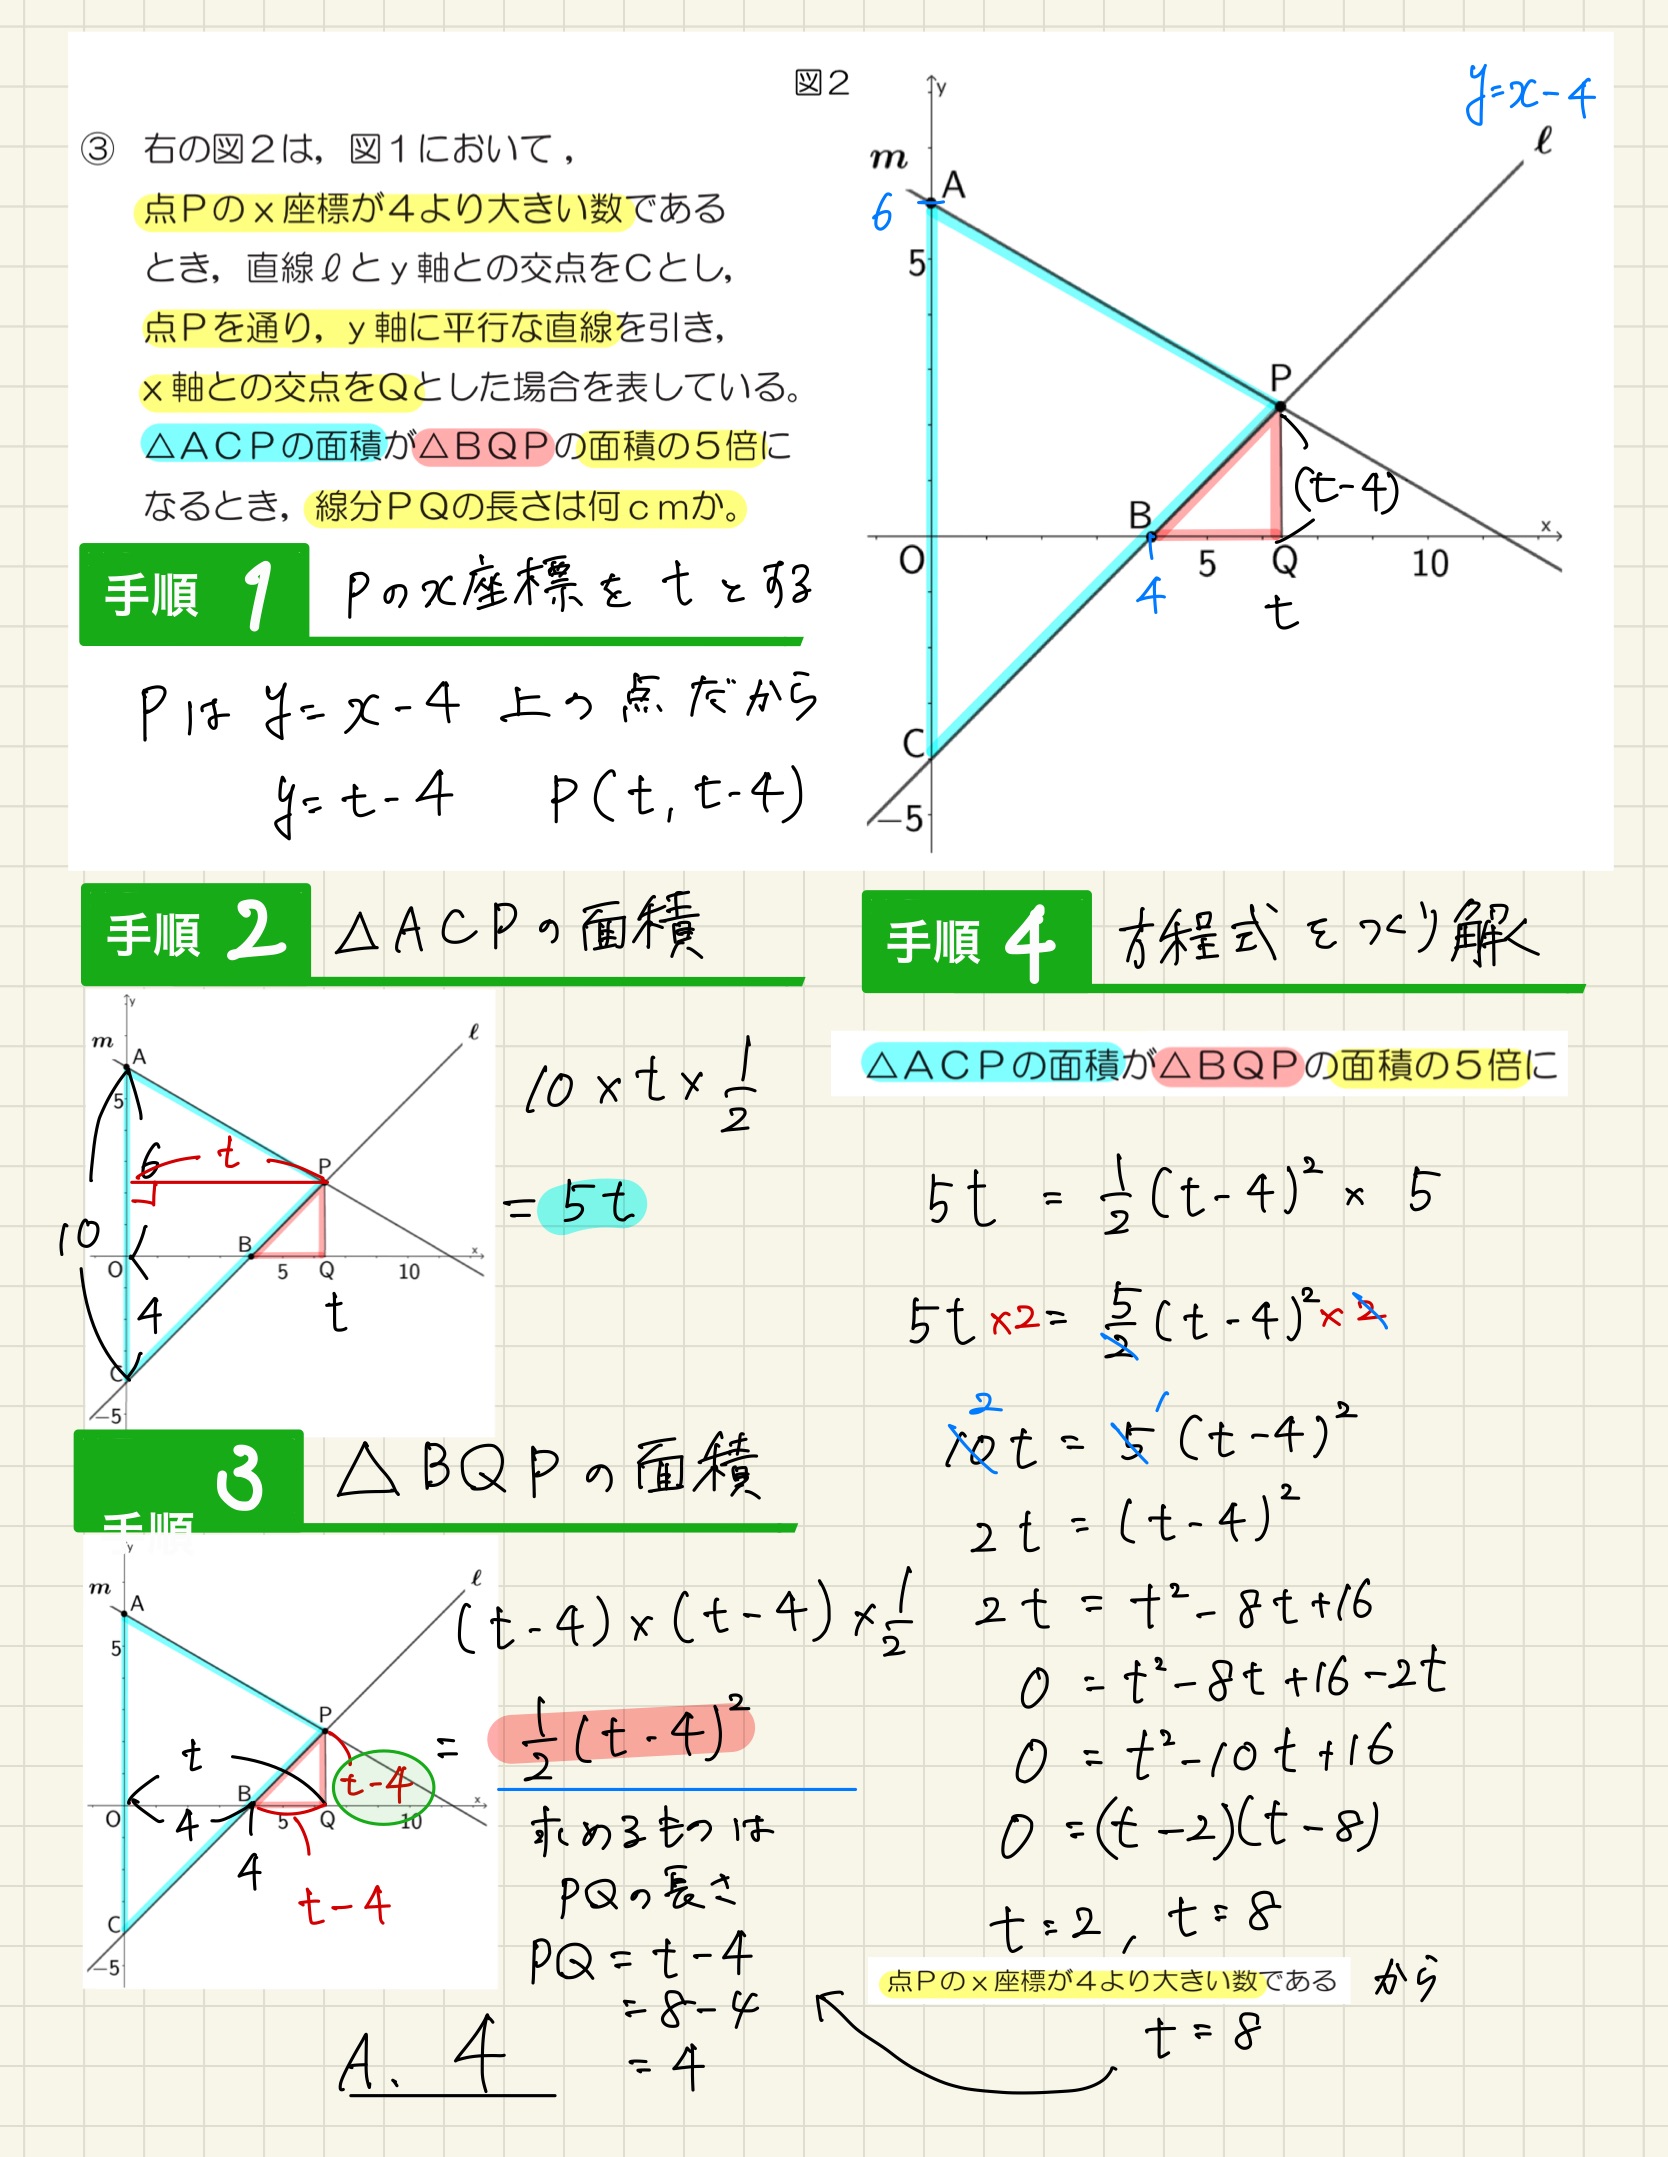 図2
y=x-4
③ 右の図2は，図1において，
点Pのx座標が4より大きい数である
とき，直線ℓとy軸との交点をCとし，
点Pを通り，y軸に平行な直線を引き，
x軸との交点をQとした場合を表している。
△ACPの面積が△BQPの面積の5倍に
なるとき，線分PQの長さは何cmか。
y
m
ℓ
A
6
5
P
(t-4)
B
x
O
4
5
Q
10
t
C
-5
手順 1 Pのx座標をtとする
Pは y=x-4 上の点だから
y=t-4 P(t, t-4)
手順 2 △ACPの面積
y
m
ℓ
A
5
6
t
P
10
B
x
O
5
Q
10
4
t
C
-5
10×t×1/2
=5t
手順 3 △BQPの面積
y
m
ℓ
A
5
P
t
t-4
B
x
O
4
5
Q
10
4
t-4
C
-5
(t-4)×(t-4)×1/2
=1/2(t-4)²
求めるものは
PQの長さ
PQ=t-4
=8-4
=4
A. 4
手順 4 方程式をつくり解く
△ACPの面積が△BQPの面積の5倍に
5t = 1/2(t-4)²×5
5t×2=5/2(t-4)²×2
2 1
10t=5(t-4)²
2t=(t-4)²
2t=t²-8t+16
0=t²-8t+16-2t
0=t²-10t+16
0=(t-2)(t-8)
t=2, t=8
点Pのx座標が4より大きい数である から
t=8